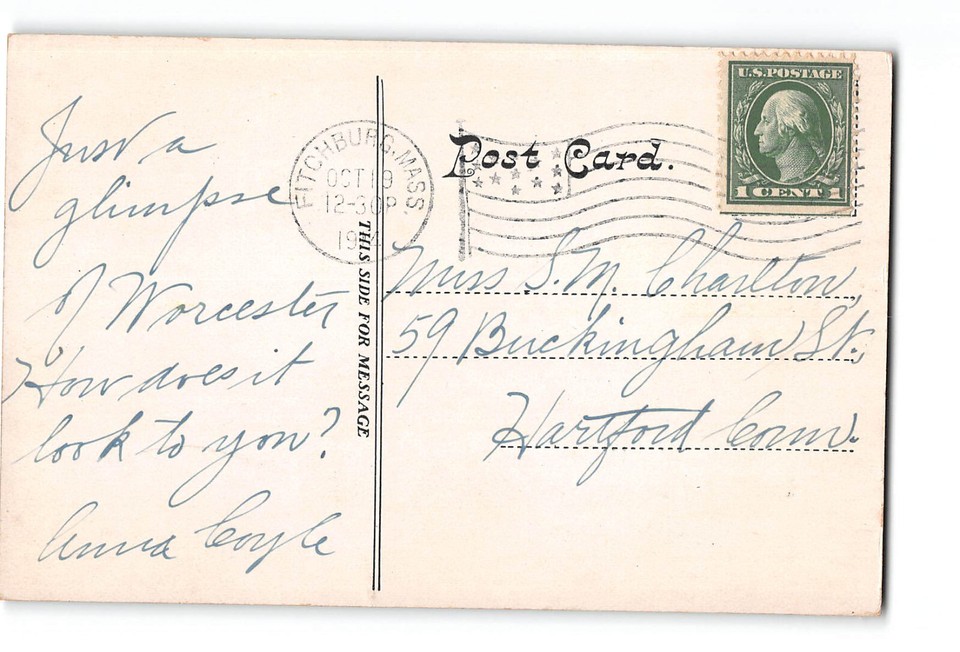 Just a
glimpse
of Worcester
How does it
look to you?
Anna Coyle
THIS SIDE FOR MESSAGE
FITCHBURG, MASS.
OCT 19
12-30P
Post Card.
U.S. POSTAGE
1 CENT 1
Miss S. M. Charlton,
59 Buckingham St.,
Hartford Conn.